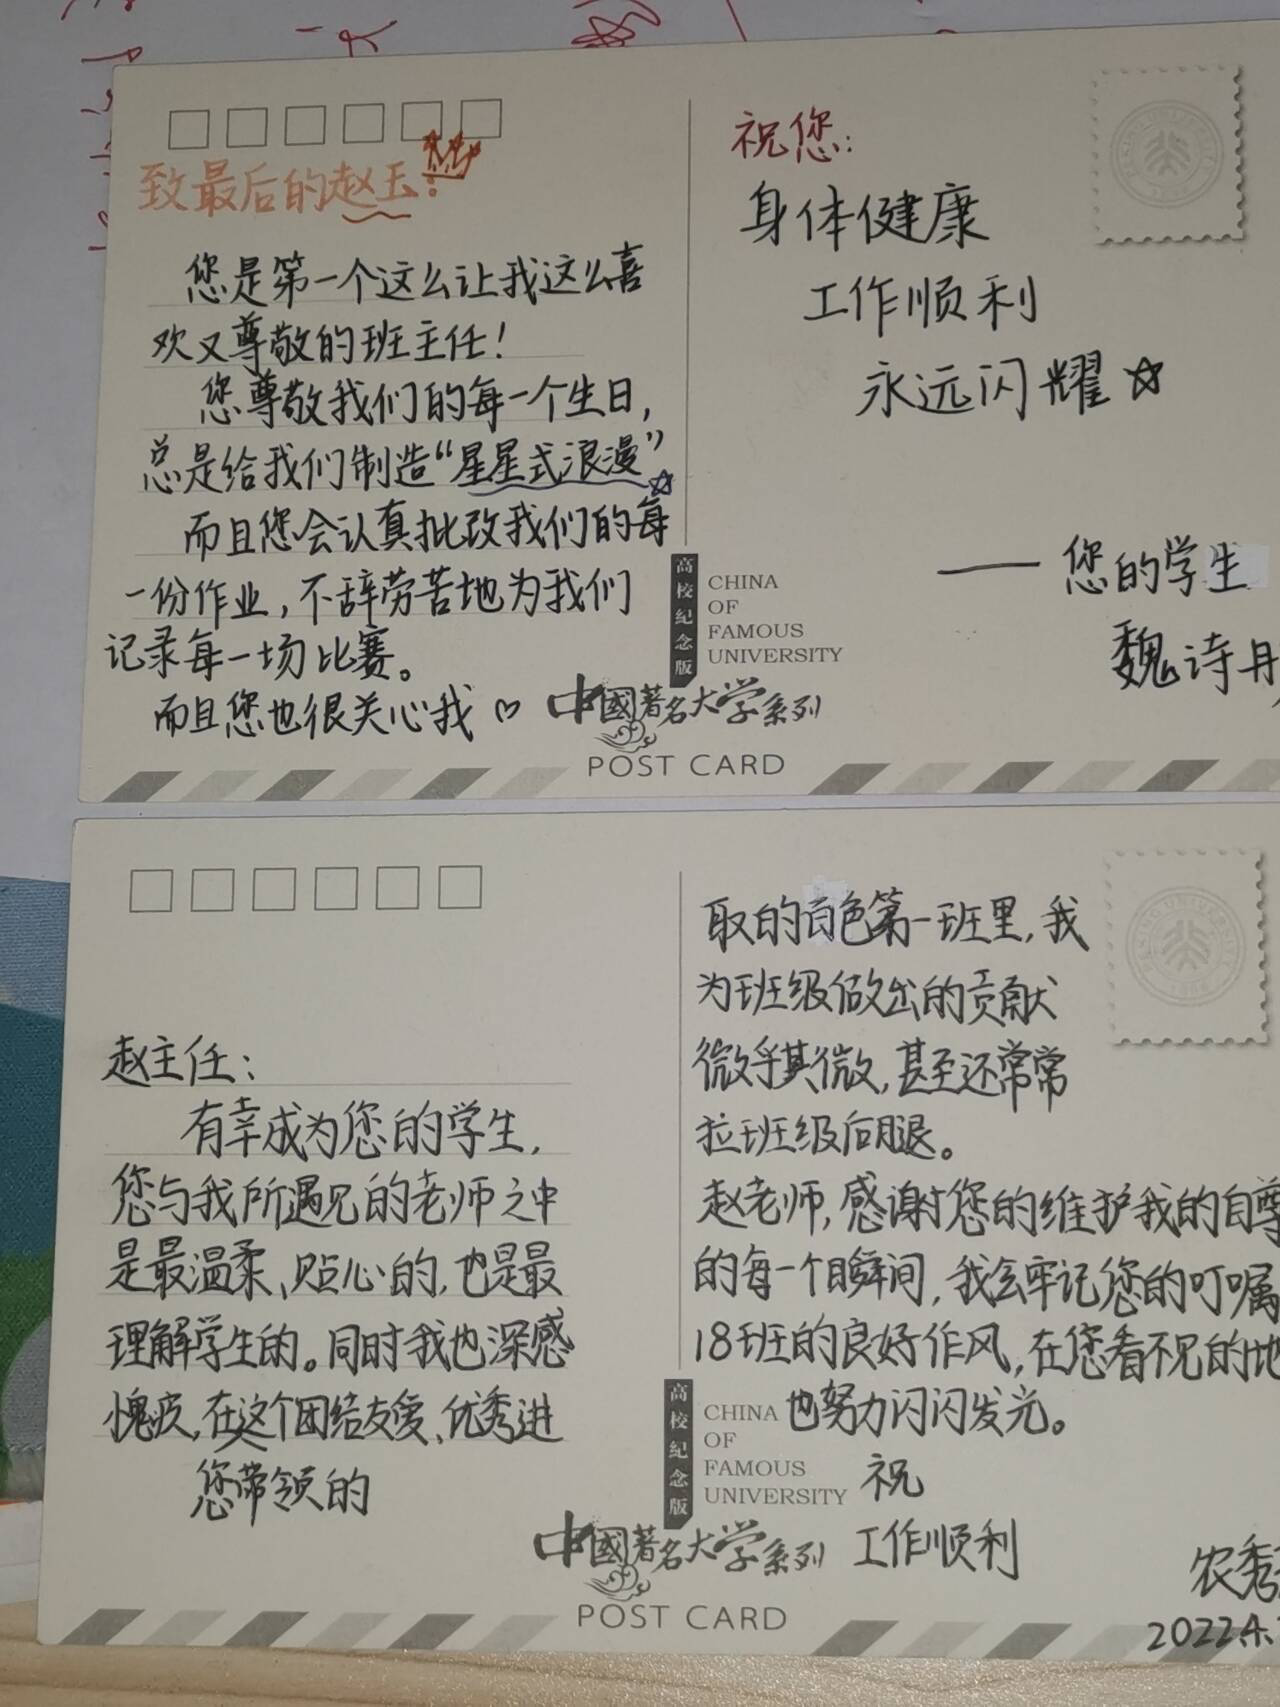 致最后的赵玉:
您是第一个这么让我这么喜
欢又尊敬的班主任！
您尊敬我们的每一个生日，
总是给我们制造“星星式浪漫”
而且您会认真批改我们的每
一份作业，不辞劳苦地为我们
记录每一场比赛。
而且您也很关心我♡
祝您：
身体健康
工作顺利
永远闪耀☆
——您的学生
魏诗丹
高校纪念版
CHINA
OF
FAMOUS
UNIVERSITY
中國著名大学系列
POST CARD
赵主任：
有幸成为您的学生，
您与我所遇见的老师之中
是最温柔、贴心的，也是最
理解学生的。同时我也深感
愧疚，在这个团结友爱、优秀进
您带领的
取的百色第一班里，我
为班级做出的贡献
微乎其微，甚至还常常
拉班级后腿。
赵老师，感谢您的维护我的自尊
的每一个瞬间，我会牢记您的叮嘱
18班的良好作风，在您看不见的地
也努力闪闪发光。
祝
工作顺利
农秀
2022.4.
高校纪念版
CHINA
OF
FAMOUS
UNIVERSITY
中國著名大学系列
POST CARD